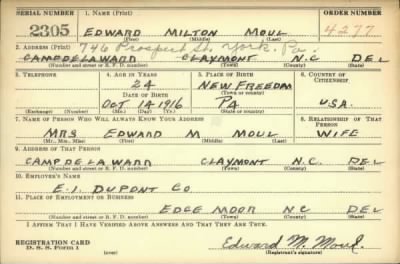 SERIAL NUMBER 1. NAME (Print) ORDER NUMBER
2305 EDWARD MILTON MOUL 4277
(First) (Middle) (Last)
2. ADDRESS (Print) 746 Prospect St. York. Pa.
CAMPDELAWARD CLAYMONT N.C DEL
(Number and street or R. F. D. number) (Town) (County) (State)
3. TELEPHONE 4. AGE IN YEARS 5. PLACE OF BIRTH 6. COUNTRY OF CITIZENSHIP
24 NEW FREEDOM
DATE OF BIRTH (Town or county)
OCT 14 1916 PA U.S.A.
(Exchange) (Number) (Mo.) (Day) (Yr.) (State or country)
7. NAME OF PERSON WHO WILL ALWAYS KNOW YOUR ADDRESS 8. RELATIONSHIP OF THAT PERSON
MRS EDWARD M MOUL WIFE
(Mr., Mrs., Miss) (First) (Middle) (Last)
9. ADDRESS OF THAT PERSON
CAMPDELAWARD CLAYMONT N.C. DEL
(Number and street or R. F. D. number) (Town) (County) (State)
10. EMPLOYER'S NAME
E.I. DUPONT CO
11. PLACE OF EMPLOYMENT OR BUSINESS
EDGE MOOR NC DEL
(Number and street or R. F. D. number) (Town) (County) (State)
I AFFIRM THAT I HAVE VERIFIED ABOVE ANSWERS AND THAT THEY ARE TRUE.
REGISTRATION CARD Edward M. Moul
D. S. S. Form 1 (over) (Registrant's signature)